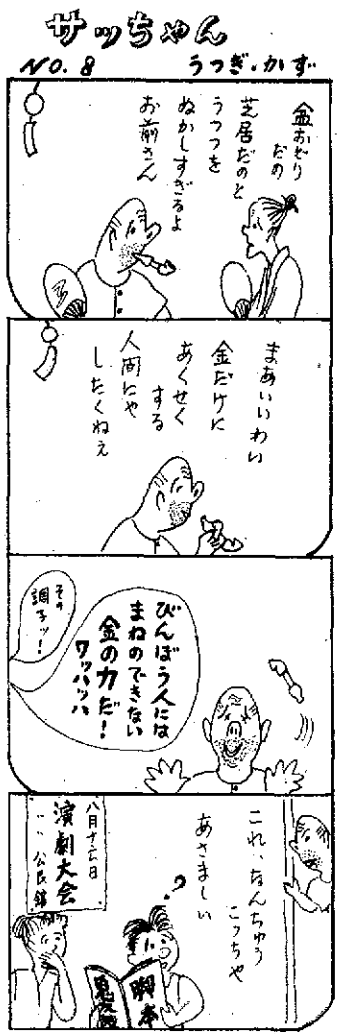 サッちゃん
NO. 8
うつぎ・かず
金おどり
だの
芝居だのと
うつつを
ぬかしすぎるよ
お前さん
まあいいわい
金だけに
あくせく
する
人間にや
したくねえ
びんぼう人には
まねのできない
金の力だ!
ワッハッハ
その
調子ッ!
これ、なんちゅう
こっちゃ
あさましい
八月十六日
演劇大会
公民館
脚本